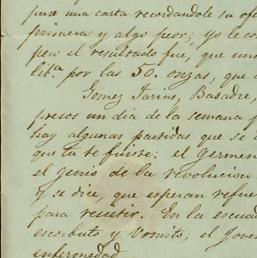 puse una carta recordandole su ofe
primera y algo peor; yo le co
pero el resultado fué, que un
lib.ª por las 50. onzas, que
Gomez Farias, Basadre,
presos un dia de la semana p
hay algunas partidas que se
que tu te fuiste: el Germen
el genio de la revolucion
y se dice, que esperan refue
para resistir. En la escuad
escorbuto y vomito; el Jove
enfermedad